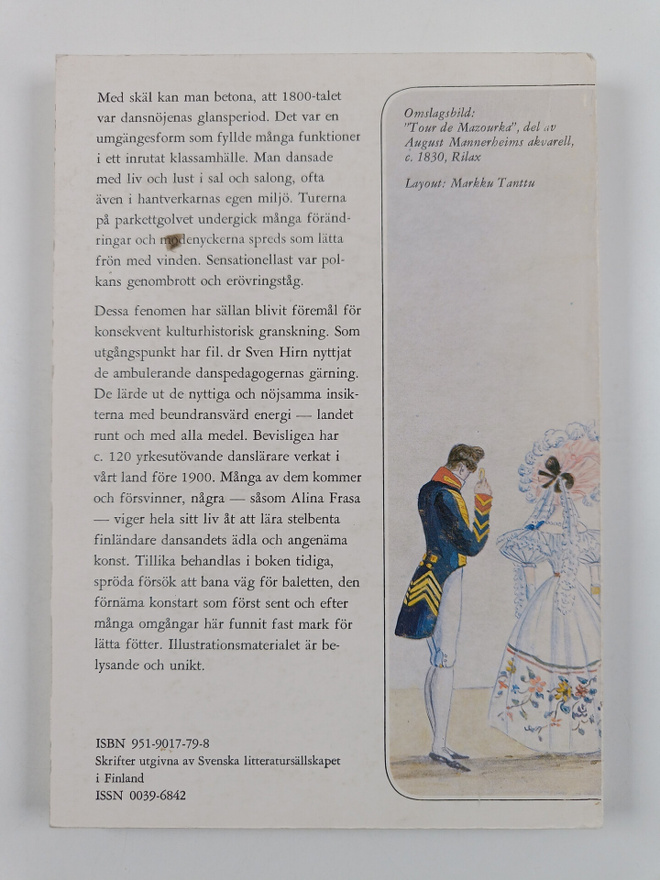 Med skäl kan man betona, att 1800-talet
var dansnöjenas glansperiod. Det var en
umgängesform som fyllde många funktioner
i ett inrutat klassamhälle. Man dansade
med liv och lust i sal och salong, ofta
även i hantverkarnas egen miljö. Turerna
på parkettgolvet undergick många föränd-
ringar och modenyckerna spreds som lätta
frön med vinden. Sensationellast var pol-
kans genombrott och erövringståg.
Dessa fenomen har sällan blivit föremål för
konsekvent kulturhistorisk granskning. Som
utgångspunkt har fil. dr Sven Hirn nyttjat
de ambulerande danspedagogernas gärning.
De lärde ut de nyttiga och nöjsamma insik-
terna med beundransvärd energi — landet
runt och med alla medel. Bevisligen har
c. 120 yrkesutövande danslärare verkat i
vårt land före 1900. Många av dem kommer
och försvinner, några — såsom Alina Frasa
— viger hela sitt liv åt att lära stelbenta
finländare dansandets ädla och angenäma
konst. Tillika behandlas i boken tidiga,
spröda försök att bana väg för baletten, den
förnäma konstart som först sent och efter
många omgångar här funnit fast mark för
lätta fötter. Illustrationsmaterialet är be-
lysande och unikt.
ISBN 951-9017-79-8
Skrifter utgivna av Svenska litteratursällskapet
i Finland
ISSN 0039-6842
Omslagsbild:
"Tour de Mazourka", del av
August Mannerheims akvarell,
c. 1830, Rilax
Layout: Markku Tanttu